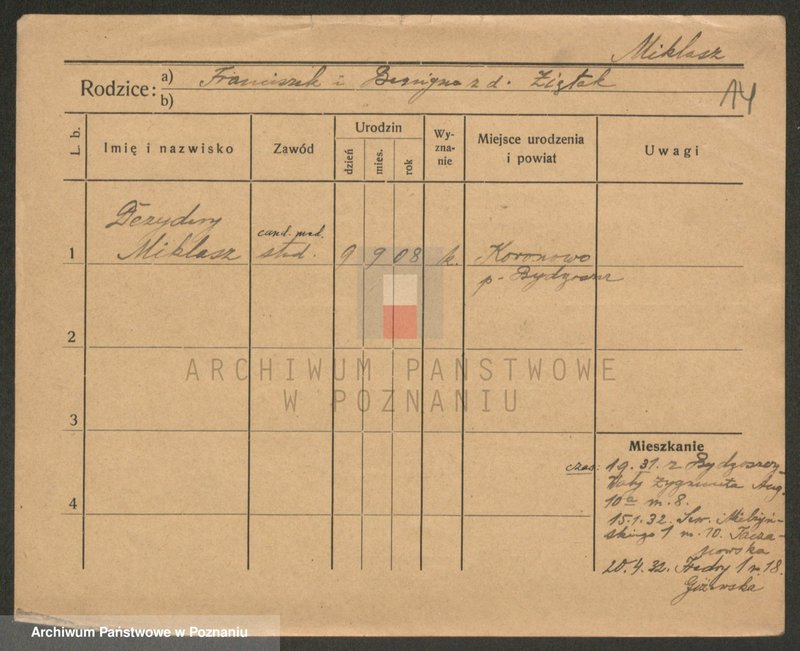 Miklasz
Rodzice: a) Franciszek i Benigna z d. Ziętek
b)
14
L. b.
Imię i nazwisko
Zawód
Urodzin
dzień
mies.
rok
Wy-
zna-
nie
Miejsce urodzenia
i powiat
Uwagi
1
Dezydery
Miklasz
cand. med.
stud.
9 9 08 k.
Koronowo
p. Bydgoszcz
2
3
4
ARCHIWUM PAŃSTWOWE
W POZNANIU
Mieszkanie
czas: 1.9.31. z Bydgoszczy
Wały Zygmunta Aug.
10a m. 8.
15.1.32. Sew. Mielżyń-
skiego 1 m. 10. Tacza-
nowska
20.4.32. Fredry 1 m. 18.
Giżewska
Archiwum Państwowe w Poznaniu